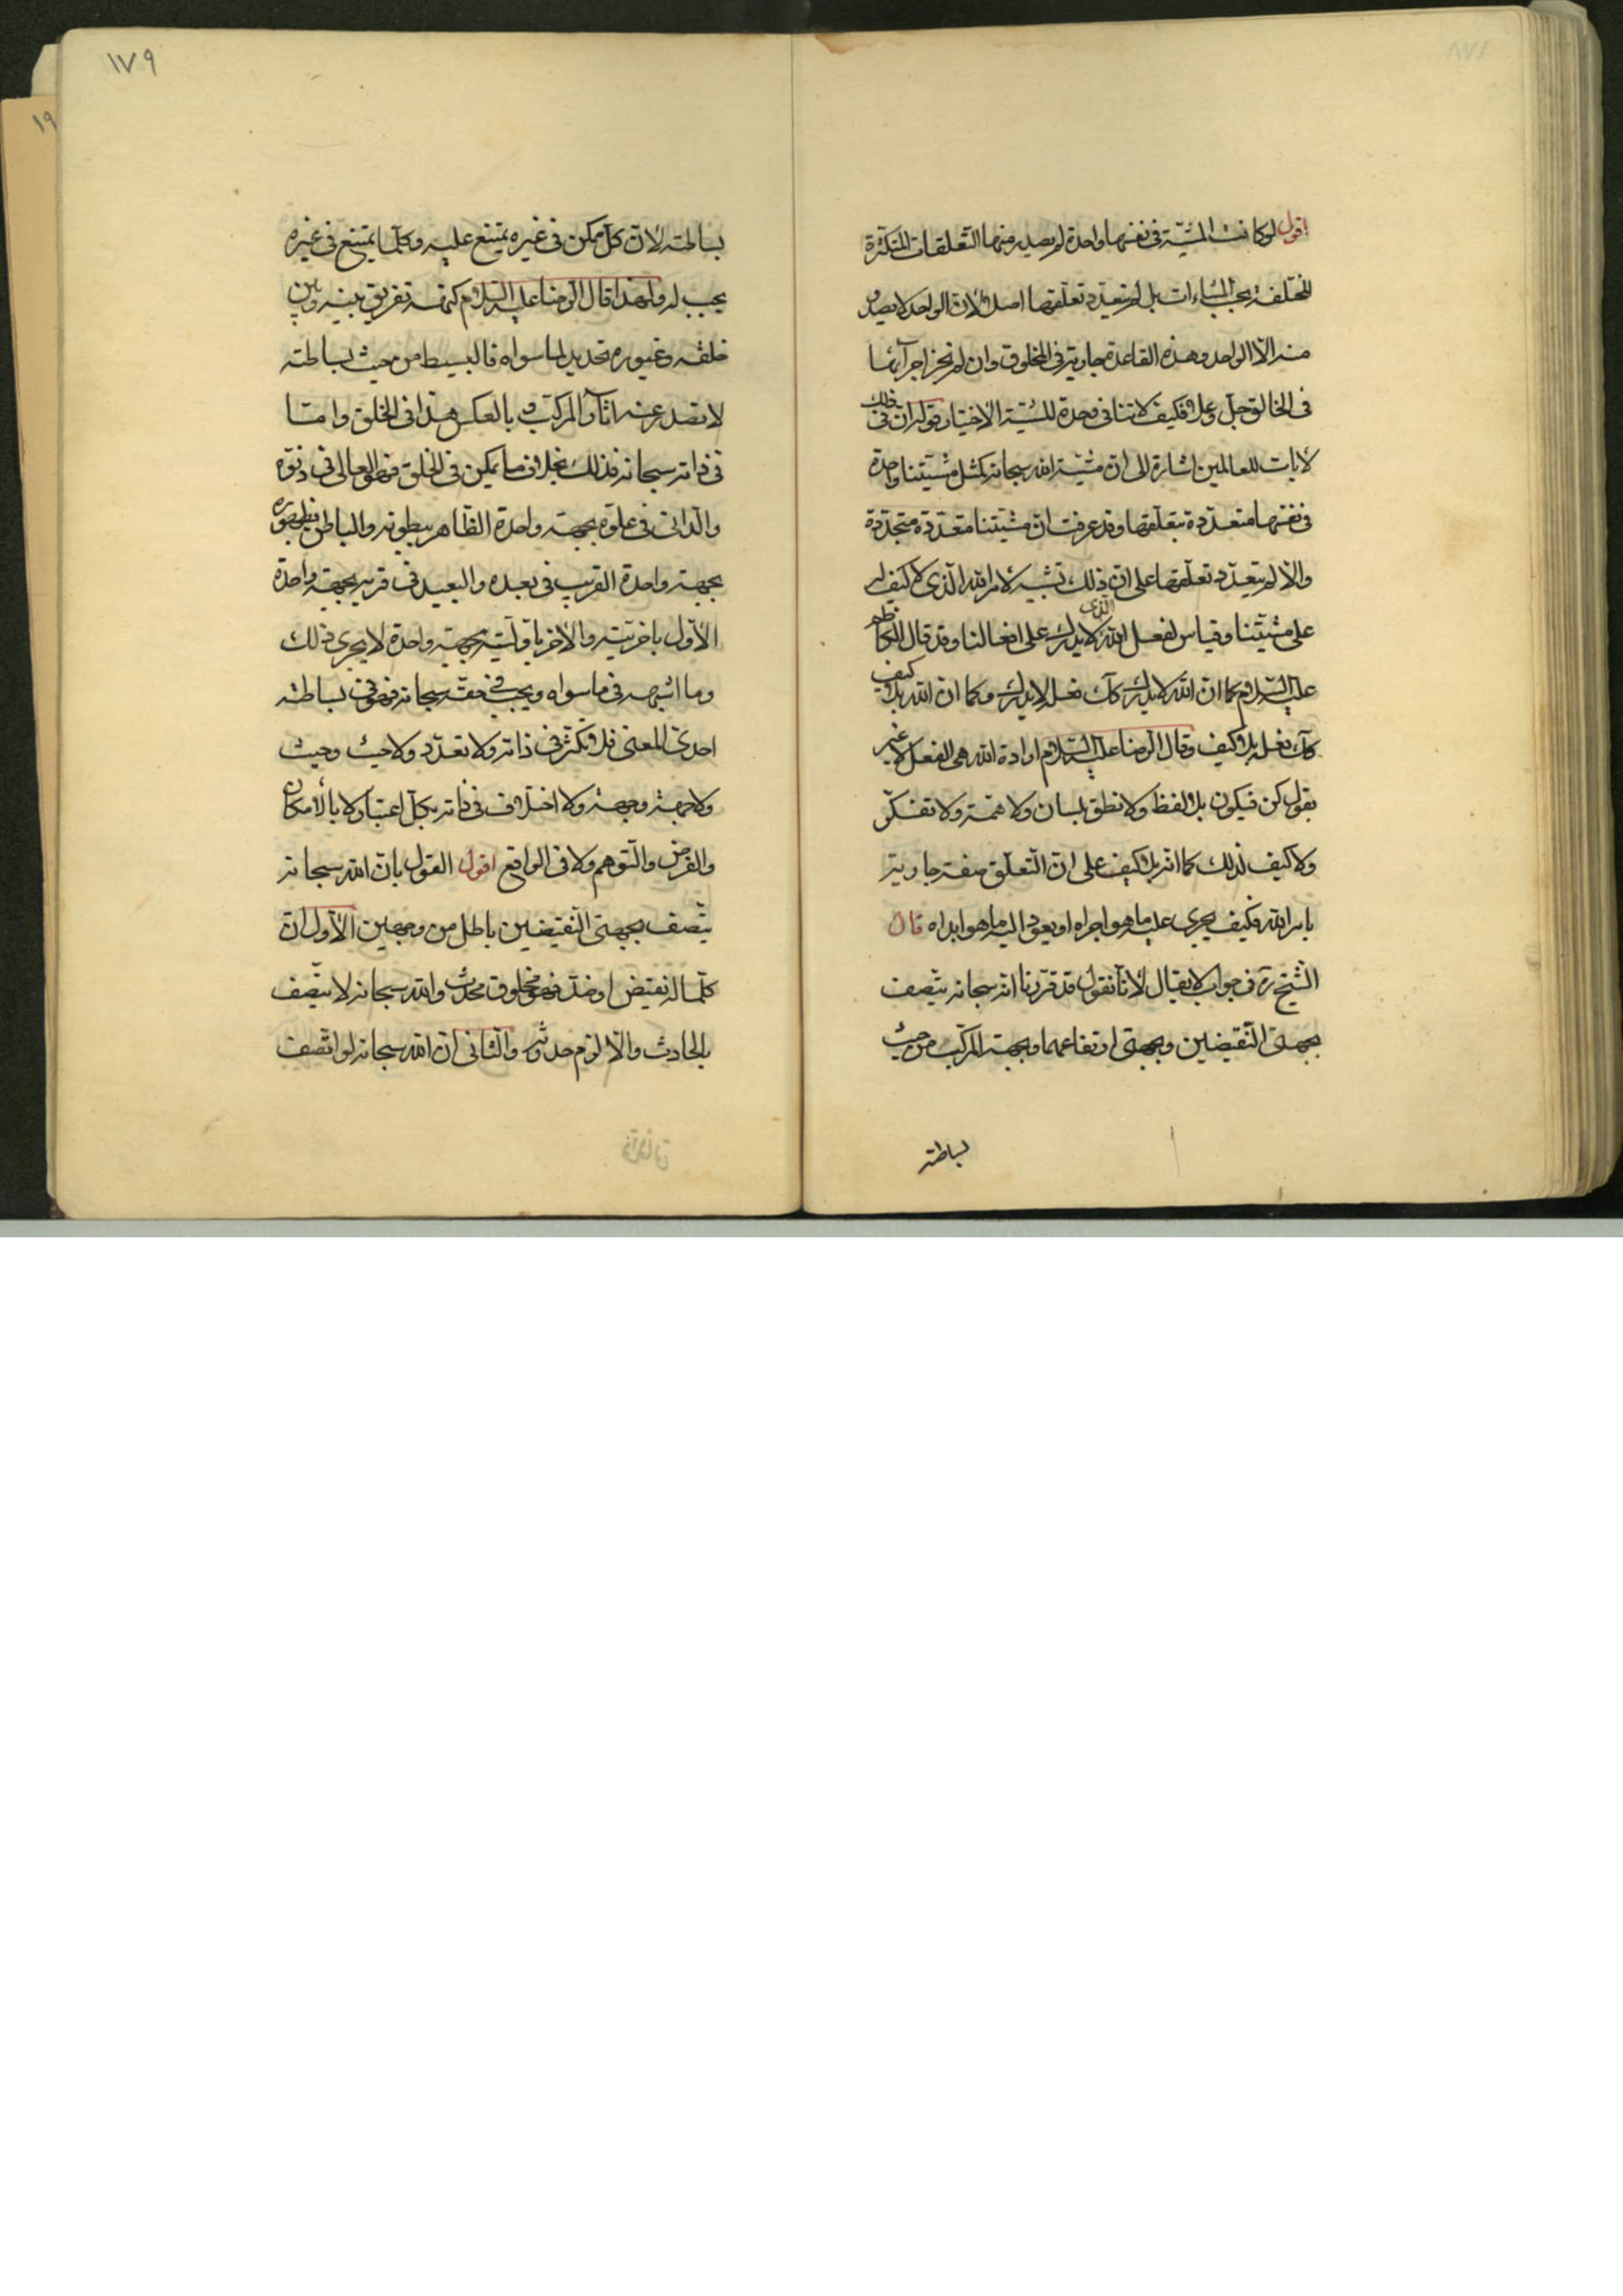 ١٧٨
اقول لو كانت المشيّة فى نفسها واحدة لم يصدر منها التعلقات المتكثرة
المختلفة بحسب المشاءات بل لم يتعدد تعلقها اصلا لان الواحد لا يصدر
منه الّا الواحد وهذه القاعدة جارية فى المخلوق وان لم نجز اجرآئها
فى الخالق جل وعلا فكيف لا تنافى وحدة المشيّة الاختيار قوله ان فى ذلك
لايات للعالمين اشارة الى ان مشيّة الله سبحانه كمثل مشيّتنا واحدة
فى نفسها متعددة بتعلقها وقد عرفت ان مشيّتنا متعددة متجددة
والّا لم يتعدد تعلقها على ان ذلك تشبيه لامر الله الذى لا كيف له
على مشيّتنا وقياس لفعل الله الذى لا يدرك على افعالنا وقد قال الكاظم
عليه السلام كما ان الله لا يدرك كك فعله لا يدرك وكما ان الله بلا كيف
كك فعله بلا كيف وقال الرضا عليه السلام ارادة الله هى الفعل لا غير
يقول كن فيكون بلا لفظ ولا نطق بلسان ولا همّة ولا تفكّر
ولا كيف لذلك كما انه بلا كيف على ان التعلق صفة جارية
بامر الله فكيف يجرى عليه ما هو اجراه او يعود اليه ما هو ابداه قال
الشيخ ره فى جواب لا يقال لانّا نقول قد قررنا انه سبحانه يتصف
بجهتى النقيضين وبجهتى ارتفاعهما وبجهة المركب من حيث
بساطته
١٧٩
بساطته لان كل ممكن فى غيره يمتنع عليه وكلما يمتنع فى غيره
يجب له ولهذا قال الرضا عليه السلام كنهه تفريق بينه وبين
خلقه وغيوره تحديد لما سواه فالبسيط من حيث بساطته
لا تصدر عنه اثار المركب و بالعكس هذا فى الخلق وامّا
فى ذاته سبحانه فذلك بخلاف ما يمكن فى الخلق فهو العالى فى دنوه
والدانى فى علوه بجهة واحدة الظاهر ببطونه والباطن بظهوره
بجهة واحدة القريب فى بعده والبعيد فى قربه بجهة واحدة
الاول باخريّته والاخر باوليّته بجهة واحدة لا يجرى ذلك
وما اشبهه فى ما سواه ويجب فى حقه سبحانه فهو فى بساطته
احدىّ المعنى فلا تكثر فى ذاته ولا تعدد ولا حيث وحيث
ولا جهة وجهة ولا اختلاف فى ذاته بكل اعتبار لا بالامكان
والفرض والتوهم ولا فى الواقع اقول القول بان الله سبحانه
يتصف بجهتى النقيضين باطل من وجهين الاول ان
كلما له نقيض او ضدّ فهو مخلوق محدث والله سبحانه لا يتصف
بالحادث والّا لزم حدوثه والثانى ان الله سبحانه لو اتصف